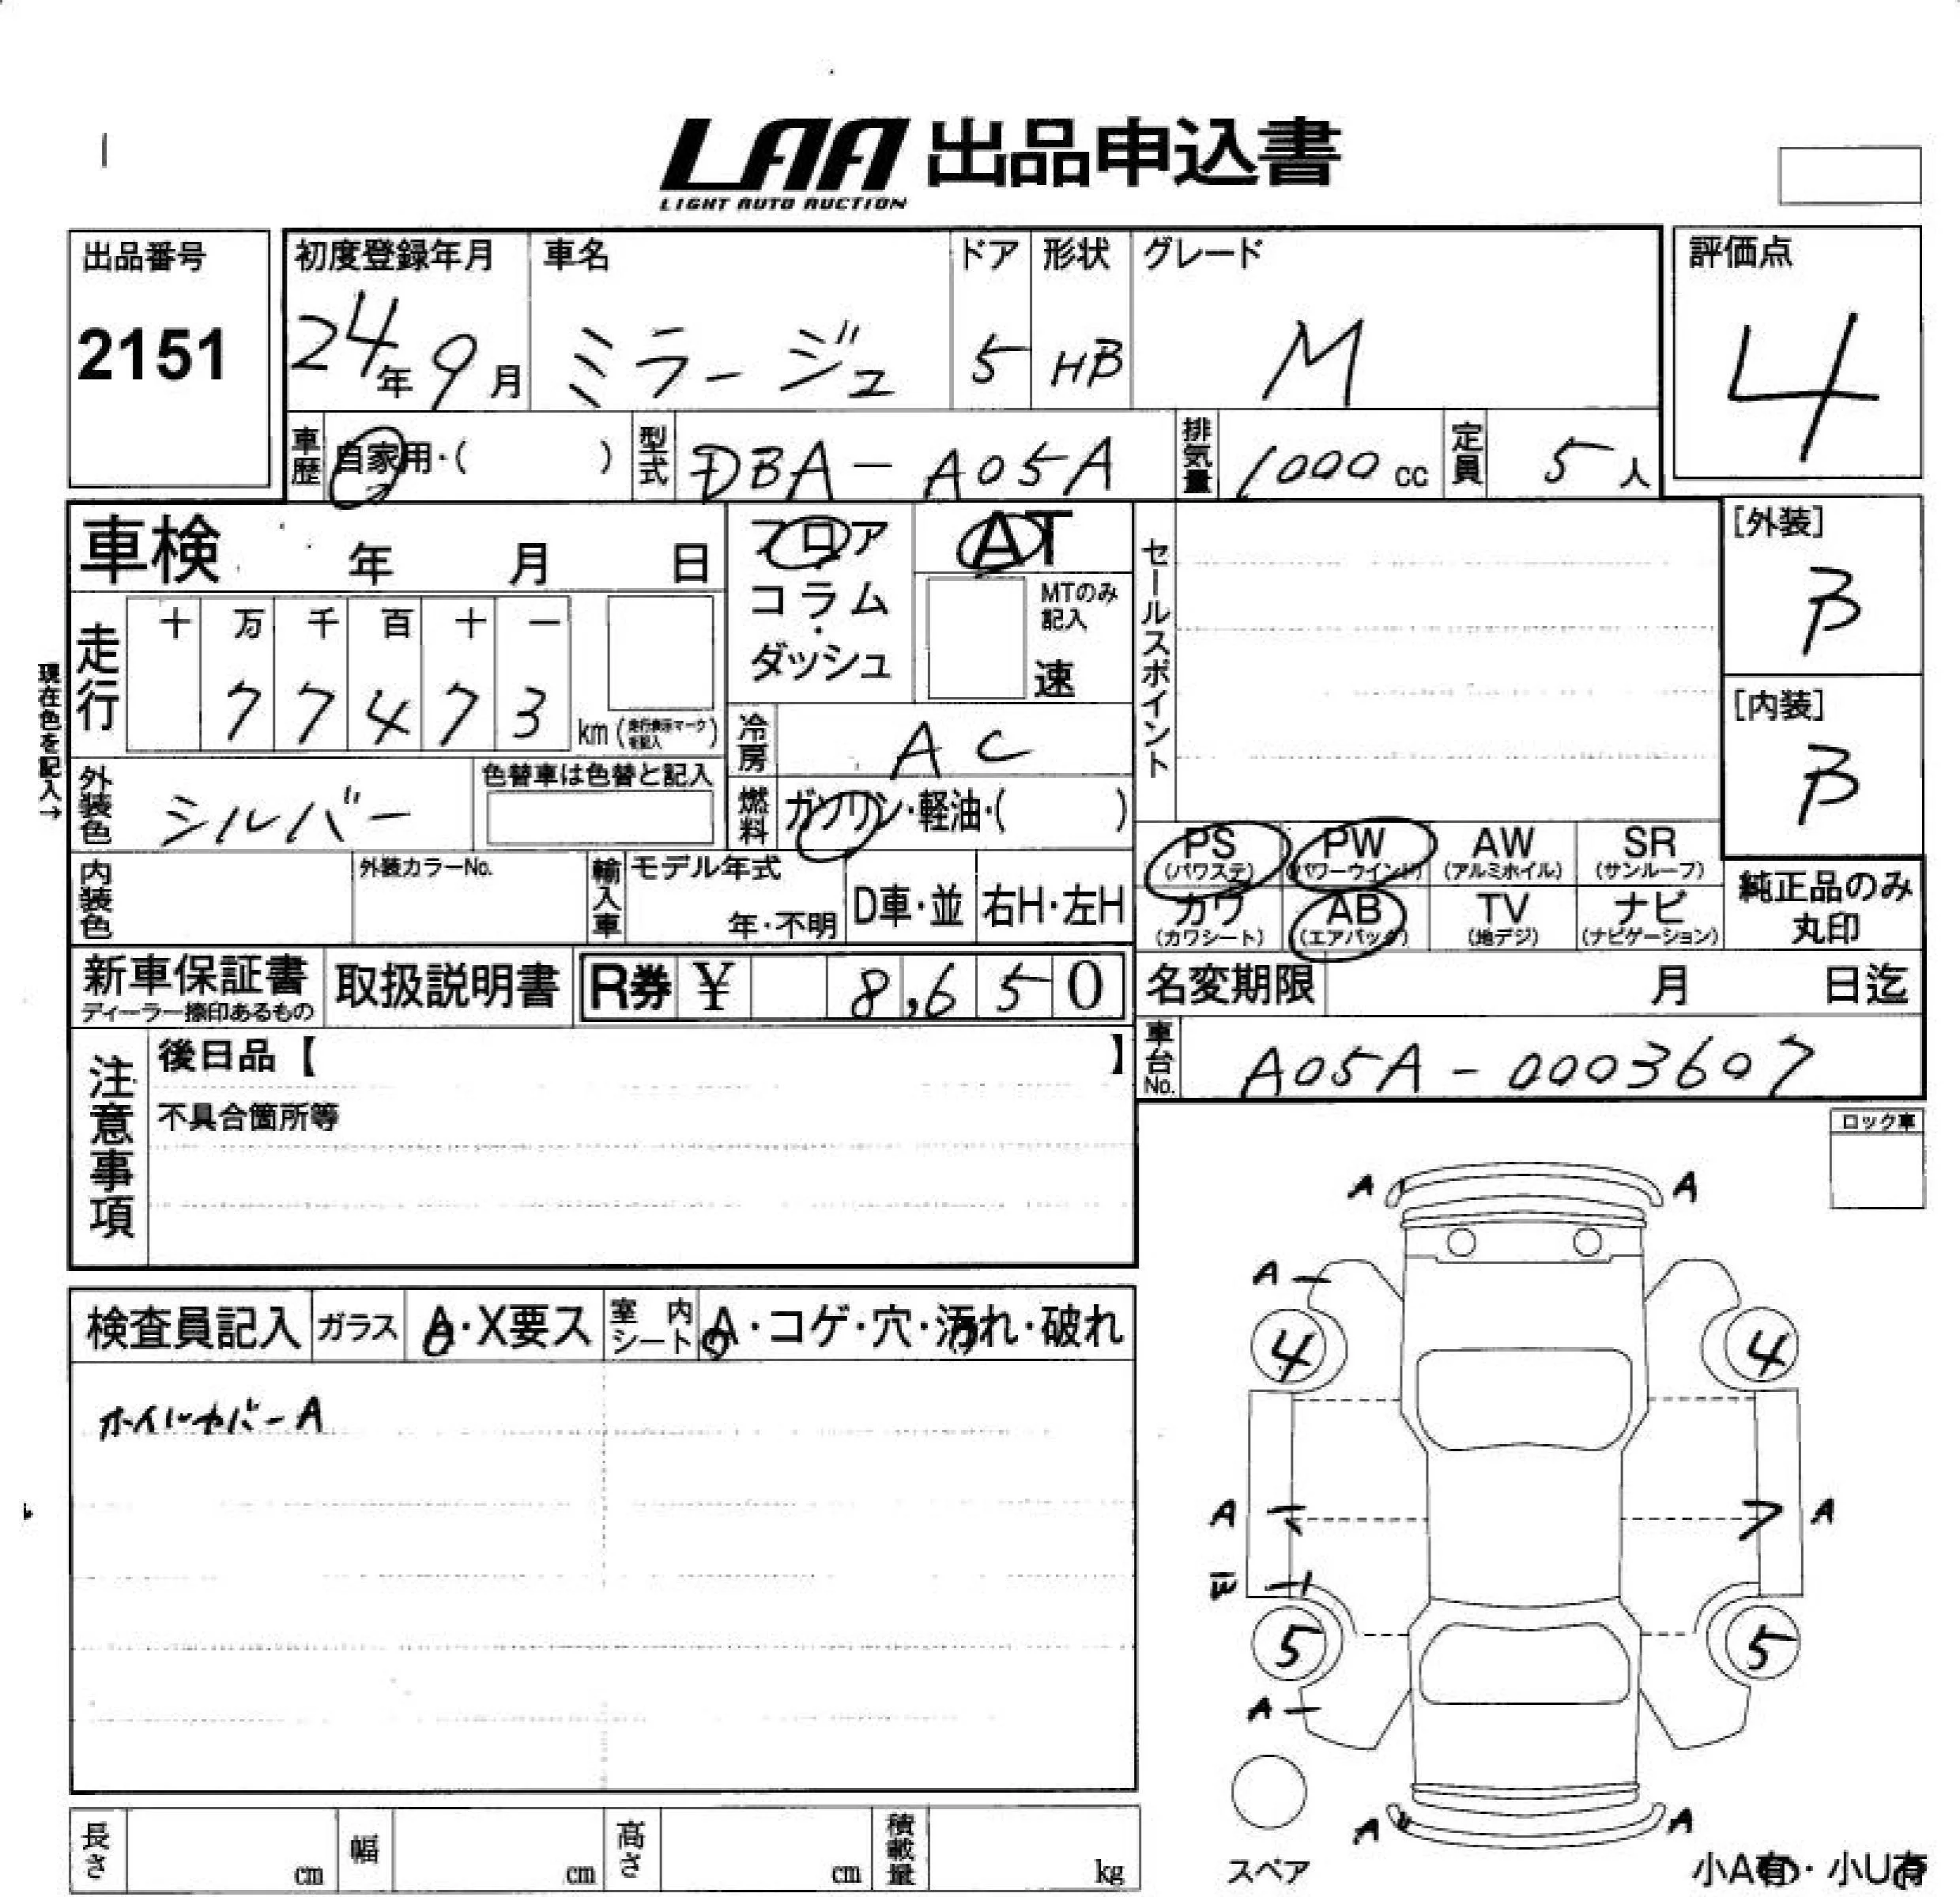 LAA 出品申込書
LIGHT AUTO AUCTION
出品番号
2151
初度登録年月
24年9月
車名
ミラージュ
ドア
5
形状
HB
グレード
M
評価点
4
車歴 自家用・( )
型式 DBA-A05A
排気量 1000cc
定員 5人
車検 年 月 日
フロア
コラム
・
ダッシュ
AT
MTのみ
記入
速
セールスポイント
[外装]
B
[内装]
B
現在色を記入→
走行
十 万 千 百 十 一
7 7 4 7 3
km (走行表示マークを記入)
冷房 AC
外装色 シルバー
色替車は色替と記入
燃料 ガソリン・軽油・( )
内装色
外装カラーNo.
輸入車
モデル年式
年・不明
D車・並
右H・左H
PS
(パワステ)
PW
(パワーウインド)
AW
(アルミホイル)
SR
(サンルーフ)
カワ
(カワシート)
AB
(エアバック)
TV
(地デジ)
ナビ
(ナビゲーション)
純正品のみ
丸印
新車保証書
ディーラー捺印あるもの
取扱説明書
R券 ¥ 8,650
名変期限 月 日迄
車台No. A05A-0003607
注意事項
後日品【 】
不具合箇所等
ロック車
検査員記入
ガラス
A・X要ス
室内シート
A・コゲ・穴・汚れ・破れ
ホイルカバーA
A A
A
4 4
A A
W
5 5
A
A A
スペア
小A有・小U有
長さ cm
幅 cm
高さ cm
積載量 kg